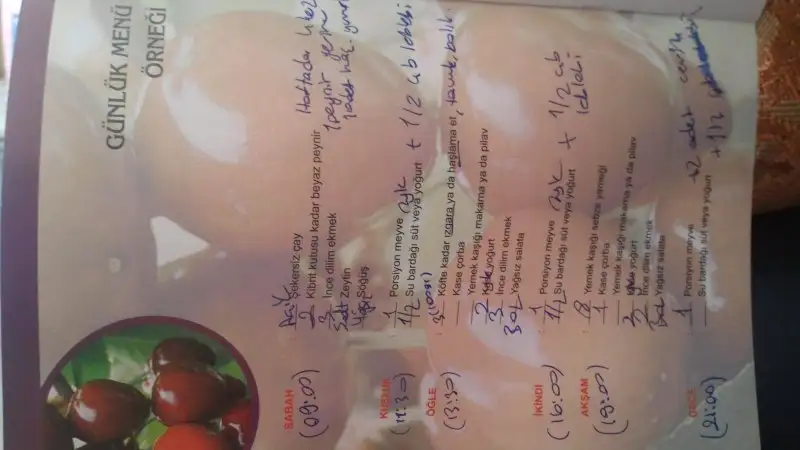 GÜNLÜK MENÜ
ÖRNEĞİ
SABAH : Şekersiz çay
(09:00) 2 Kibrit kutusu kadar beyaz peynir Haftada
1 peynir yerine
3 İnce dilim ekmek 1 adet haş. yum
5 adt Zeytin
Söğüş
KUŞLUK : 1 Porsiyon meyve
(11:30) 1/2 Su bardağı süt veya yoğurt + 1/2 çb leblebi
ÖĞLE : 3 Köfte kadar ızgara ya da haşlama et, tavuk, balık.
(13:30) Kase çorba
Yemek kaşığı makarna ya da pilav
2 yoğurt
3 İnce dilim ekmek
Bol Yağsız salata
İKİNDİ : 1 Porsiyon meyve
(16:00) 1/2 Su bardağı süt veya yoğurt + 1/2 çb
leblebi
AKŞAM : 8 Yemek kaşığı sebze yemeği
(19:00) 1 Kase çorba
Yemek kaşığı makarna ya da pilav
yoğurt
2 İnce dilim ekmek
Bol Yağsız salata
GECE : 1 Porsiyon meyve +2 adet ceviz
(21:00) Su bardağı süt veya yoğurt + 1/2